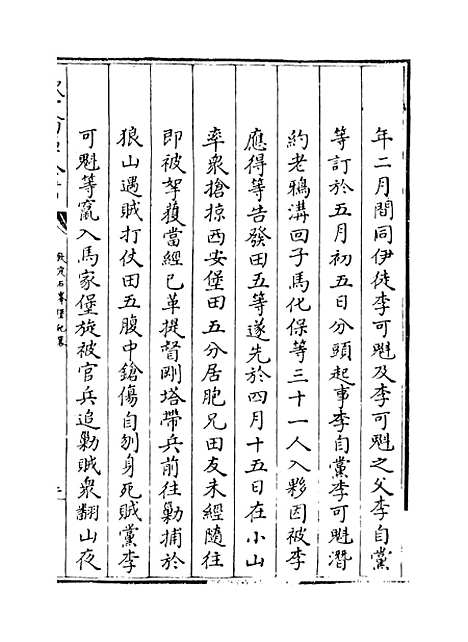 年二月間同伊徒李可魁及李可魁之父李自黨
等訂於五月初五日分頭起事李自黨李可魁潛
約老鴉溝回子馬化保等三十一人入夥因被李
應得等告發田五等遂先於四月十五日在小山
率衆搶掠西安堡田五分居胞兄田友未經隨往
即被拏獲當經已革提督剛塔帶兵前往勦捕於
狼山遇賊打仗田五腹中鎗傷自刎身死賊黨李
可魁等竄入馬家堡旋被官兵追勦賊衆翻山夜
欽定石峯堡紀畧